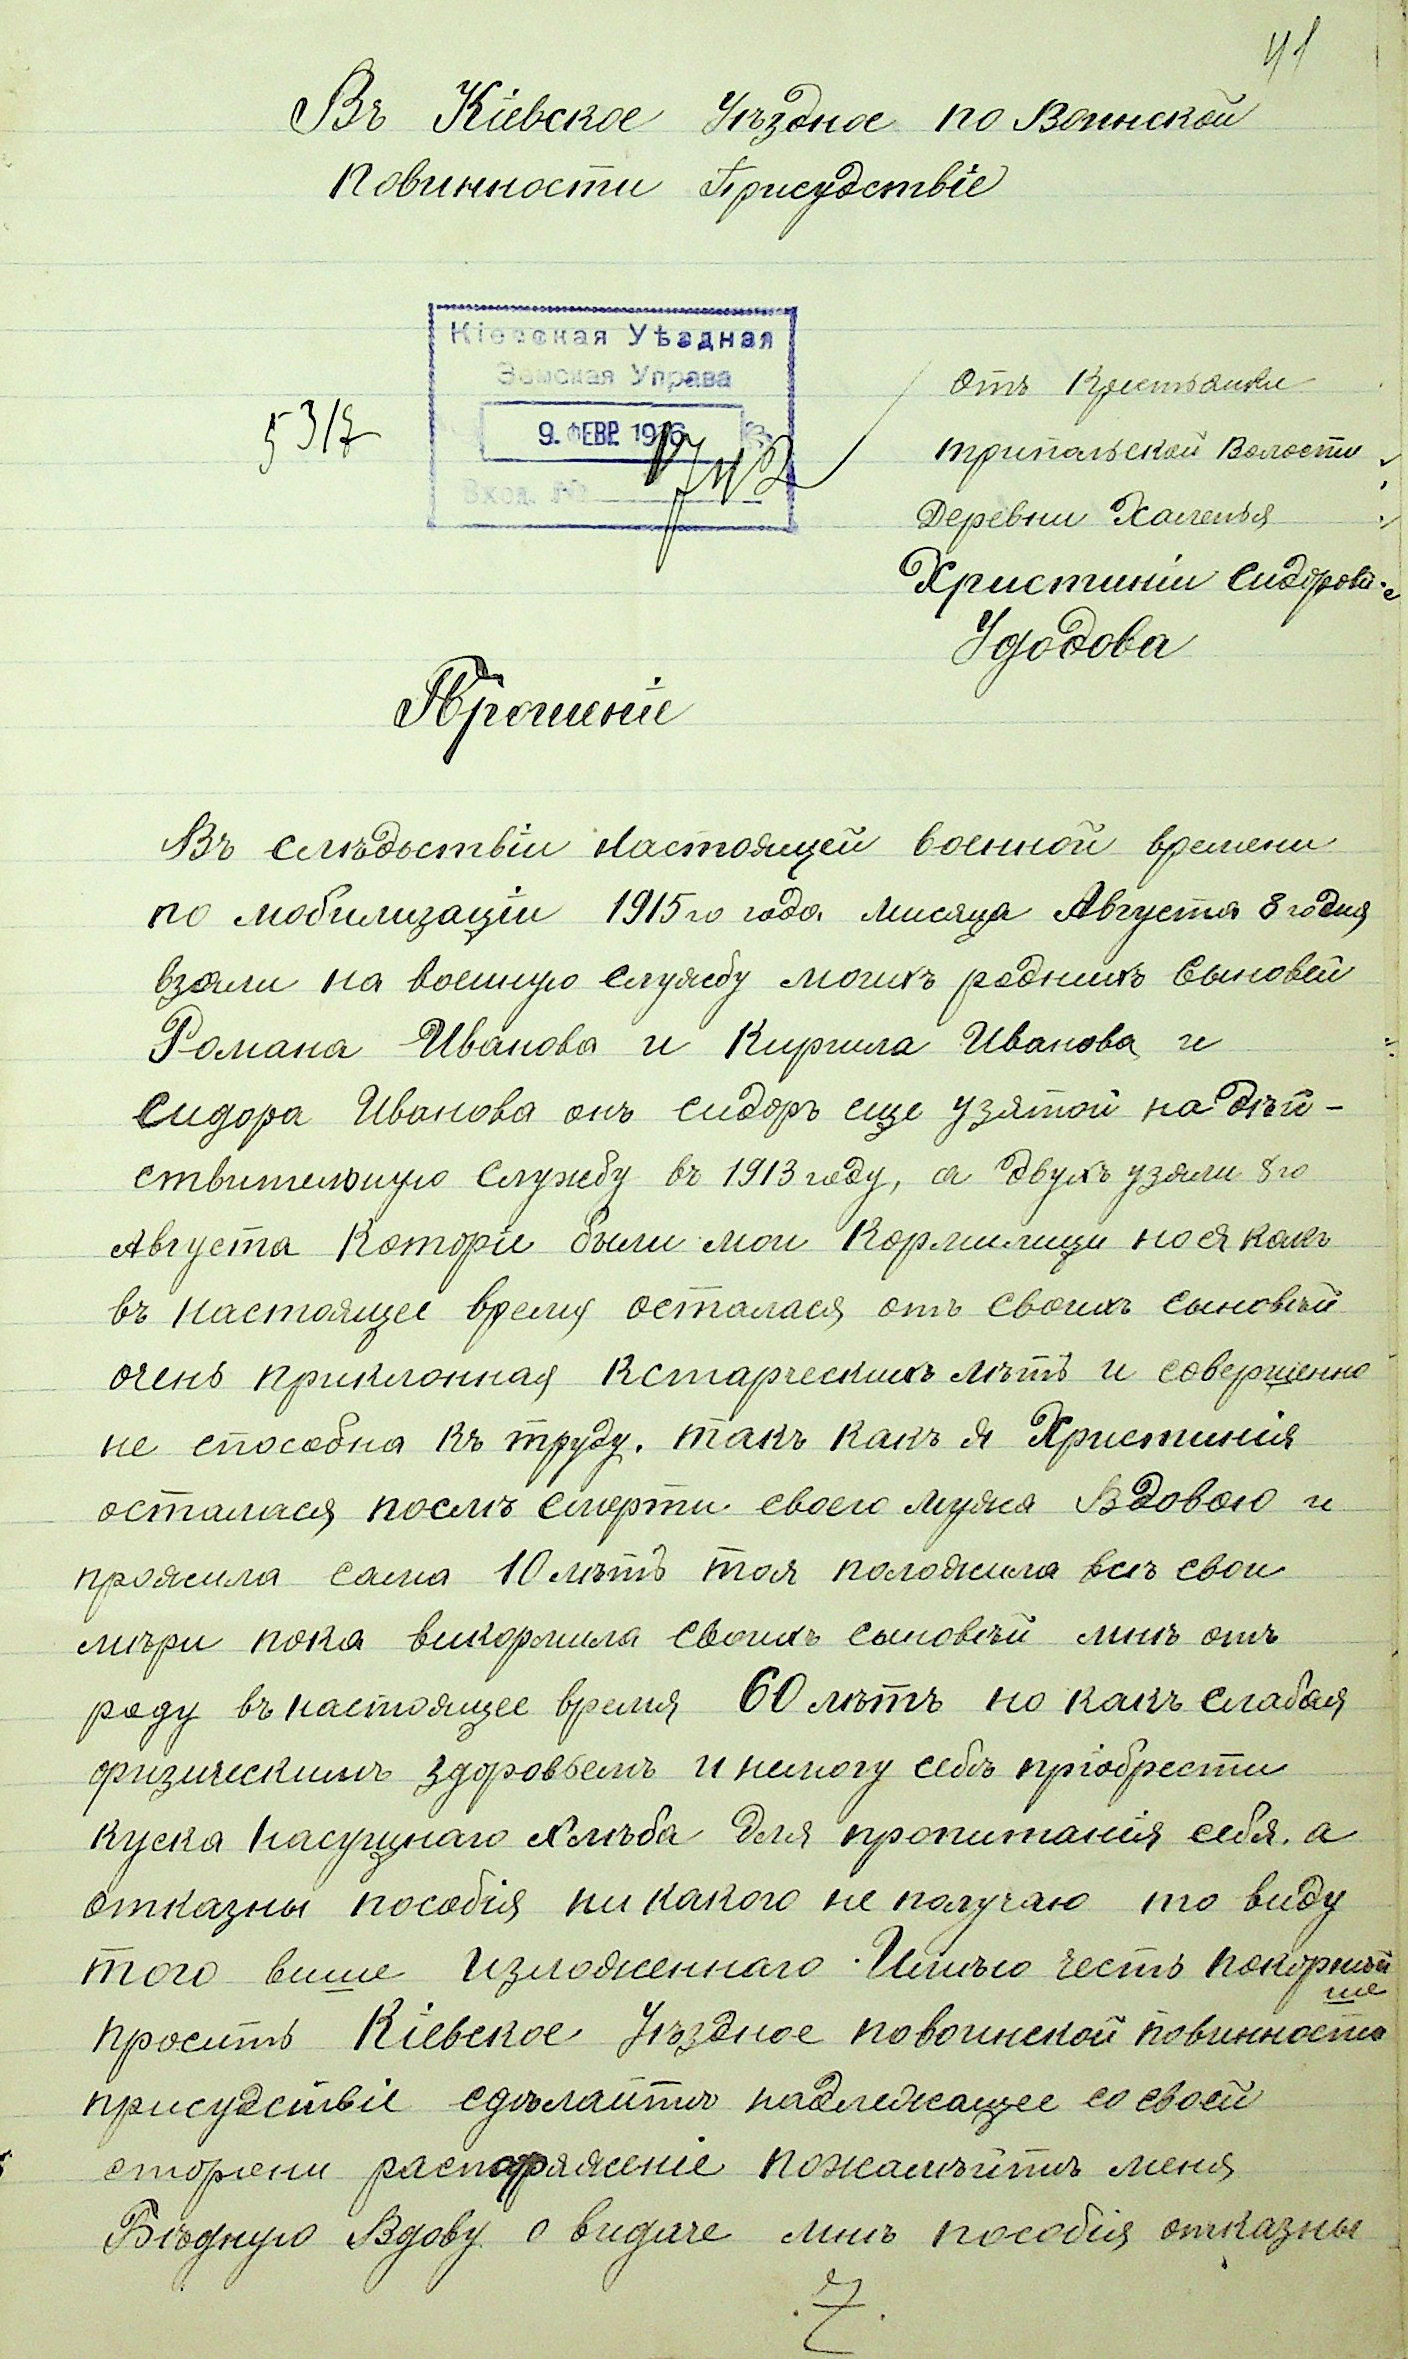 41
Въ Кіевское Уѣздное по Воинской
Повинности Присудствіе
Кіевская Уѣздная
Земская Управа
9. ФЕВР. 1916
Вход. №
531
отъ Крестьянки
трипольской Волости
Деревни Халепья
Христиніи Сидорови
Удодова
Прошеніе
Въ слѣдьствіи настоящей военной времени
по мобилизаціи 1915го года мисяца Августа 8го дня
взяли на военную службу моихъ родникъ сыновей
Романа Иванова и Кирила Иванова и
Сидора Иванова онъ сидоръ еще узятой на дѣй-
ствительную службу въ 1913 году, а двухъ узяли 8го
Августа Которіе были мои Кормилищи но я какъ
въ настоящее время осталася отъ своихъ сыновѣй
очень приклонная Кстарческихъ лѣтъ и совершенно
не способна къ труду. такъ какъ я Христинія
осталася послѣ смерти своего мужа Вдовою и
прожила сама 10 лѣтъ тоя положила всѣ свои
мѣри пока викормила своихъ сыновѣй мнѣ отъ
роду въ настоящее время 60 лѣтъ но какъ слабая
физическимъ здоровьемъ и немогу себѣ пріобрести
куска насущнаго хлѣба для пропитанія себя. а
отказны пособія ни какого не получаю то виду
того више изложеннаго Имѣю честь покорнѣй
ше
просить Кіевское Уѣздное повоинской повинности
присудствіе сдѣлайтѣ надлежащее со своей
сторони распоряженіе пожалѣйтѣ меня
Бѣдную Вдову о видаче мнѣ пособія отказны